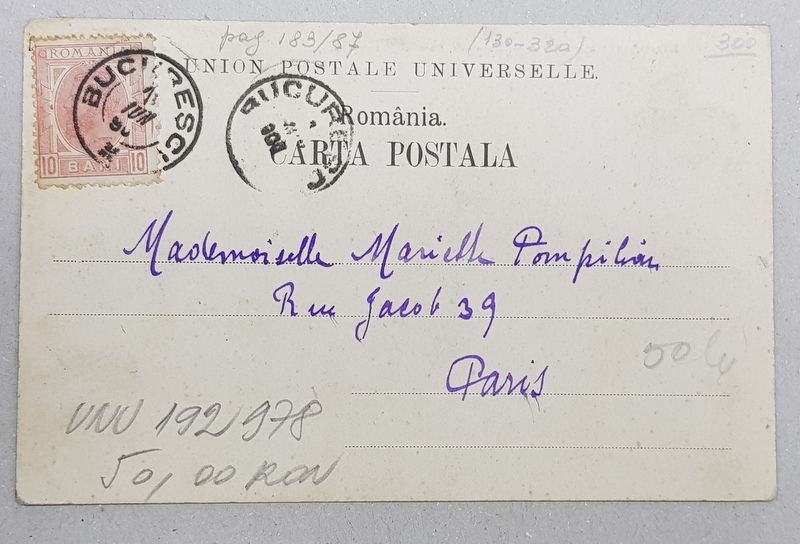 pag 183/87 (130-32a) 300
ROMANIA
10 BANI 10
BUCURESCI
BUCURESCI
UNION POSTALE UNIVERSELLE.
România.
CARTA POSTALA
Mademoiselle Marielle Pompilian
Rue Jacob 39
Paris
50 lei
192/978
50,00 RON